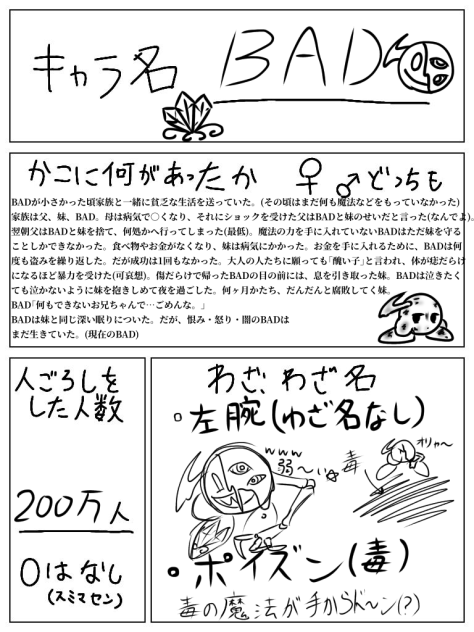 キャラ名 BAD
かこに何があったか ♀♂どっちも
BADが小さかった頃家族と一緒に貧乏な生活を送っていた。(その頃はまだ何も魔法などをもっていなかった)
家族は父、妹、BAD。母は病気で〇くなり、それにショックを受けた父はBADと妹のせいだと言った(なんでよ)。
翌朝父はBADと妹を捨て、何処かへ行ってしまった(最低)。魔法の力を手に入れていないBADはただ妹を守る
ことしかできなかった。食べ物やお金がなくなり、妹は病気にかかった。お金を手に入れるために、BADは何
度も盗みを繰り返した。だが成功は1回もなかった。大人の人たちに願っても「醜い子」と言われ、体が痣だらけ
になるほど暴力を受けた(可哀想)。傷だらけで帰ったBADの目の前には、息を引き取った妹。BADは泣きたく
ても泣かないように妹を抱きしめて夜を過ごした。何ヶ月かたち、だんだんと腐敗してく妹。
BAD「何もできないお兄ちゃんで…ごめんな。」
BADは妹と同じ深い眠りについた。だが、恨み・怒り・闇のBADは
まだ生きていた。(現在のBAD)
人ごろしを
した人数
200万人
0はなし
(スミマセン)
わざ、わざ名
・左腕(わざ名なし)
www
弱〜い
毒
オリャ〜
・ポイズン(毒)
毒の魔法が手からド〜ン(?)